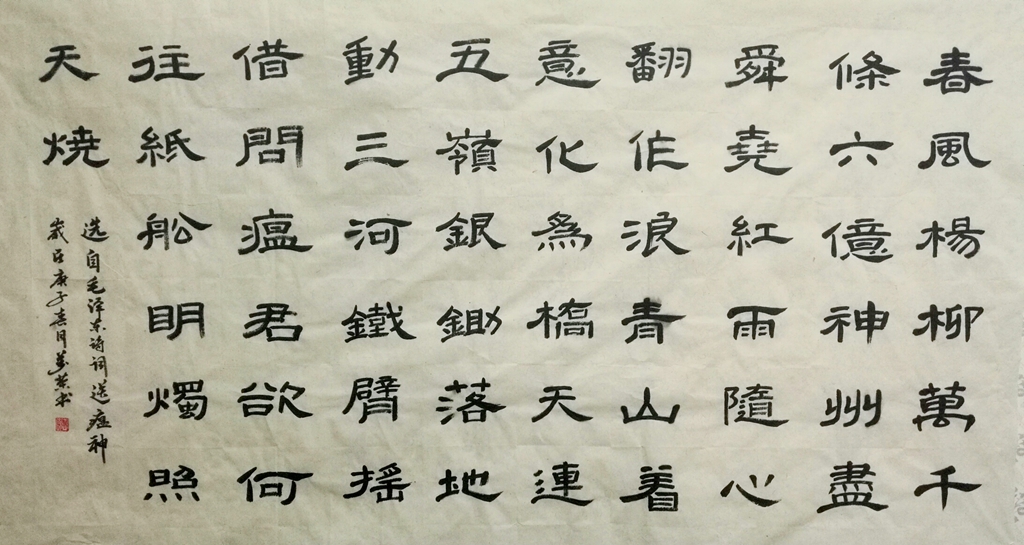 春風楊柳萬千
條六億神州盡
舜堯紅雨隨心
翻作浪青山着
意化為橋天連
五嶺銀鋤落地
動三河鐵臂摇
借問瘟君欲何
往紙船明燭照
天燒
选自毛泽东诗词送瘟神
岁在庚子春月